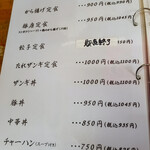 から揚げ定食 ‥‥950円(税込1045円)
豚唐定食 ‥‥950円(税込1045円)
餃子定食 販売終了
たれザンギ定食 ‥‥1000円(税込1100円)
ザンギ丼 ‥‥1000円(税込1100円)
豚丼 ‥‥950円(税込1045円)
中華丼 ‥‥850円(税込935円)
チャーハン(スープ付き) ‥‥750円(税込825円)